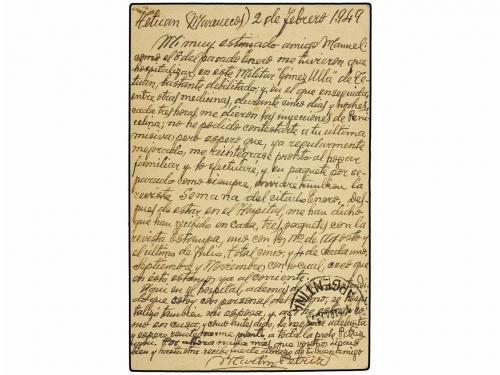 Tetuan (Marruecos) 2 de Febrero 1949
Mi muy estimado amigo Manuel:
como el 8 del pasado Enero me tuvieron que
hospitalizar, en este Militar "Gómez Ulla" de Te-
tuan, bastante debilitado, y en el que enseguida,
entre otras medicinas, durante cinco días y noches,
cada tres horas me dieron las inyecciones de Peni-
cilina; no he podido contestarte a tu ultima
misiva; pero espero que, ya regularmente
mejorado, me reintegrase pronto al hogar
familiar y lo efectuare, y en paquete por se-
parado como siempre, enviare tambien la
revista Semana del citado Enero. Des-
pues de estar en el Hospital, me han dicho
que han recibido en casa, tres paquetes con la
revista Estampa, uno con los nos. de Agosto y
el ultimo de Julio, total cinco, y 4 de cada uno,
Septiembre y Noviembre con lo cual, creo que
de esto estamos ya al corriente.
Aqui en el hospital, ademas de
que estoy con personal
tambien mi esposa, y
como en casa y
y espero
Por ahora nada más que
bien y
ARGENTINA